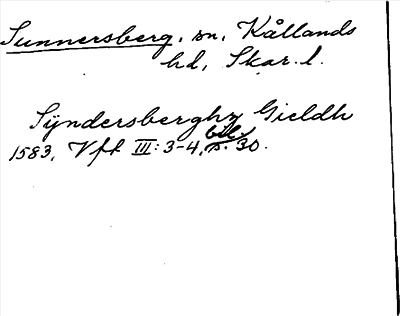 Sunnersberg, sn, Kållands
hd, Skar. l.
Sÿndersberghz Gieldh
1583, Vft III: 3-4, bil. s. 30.